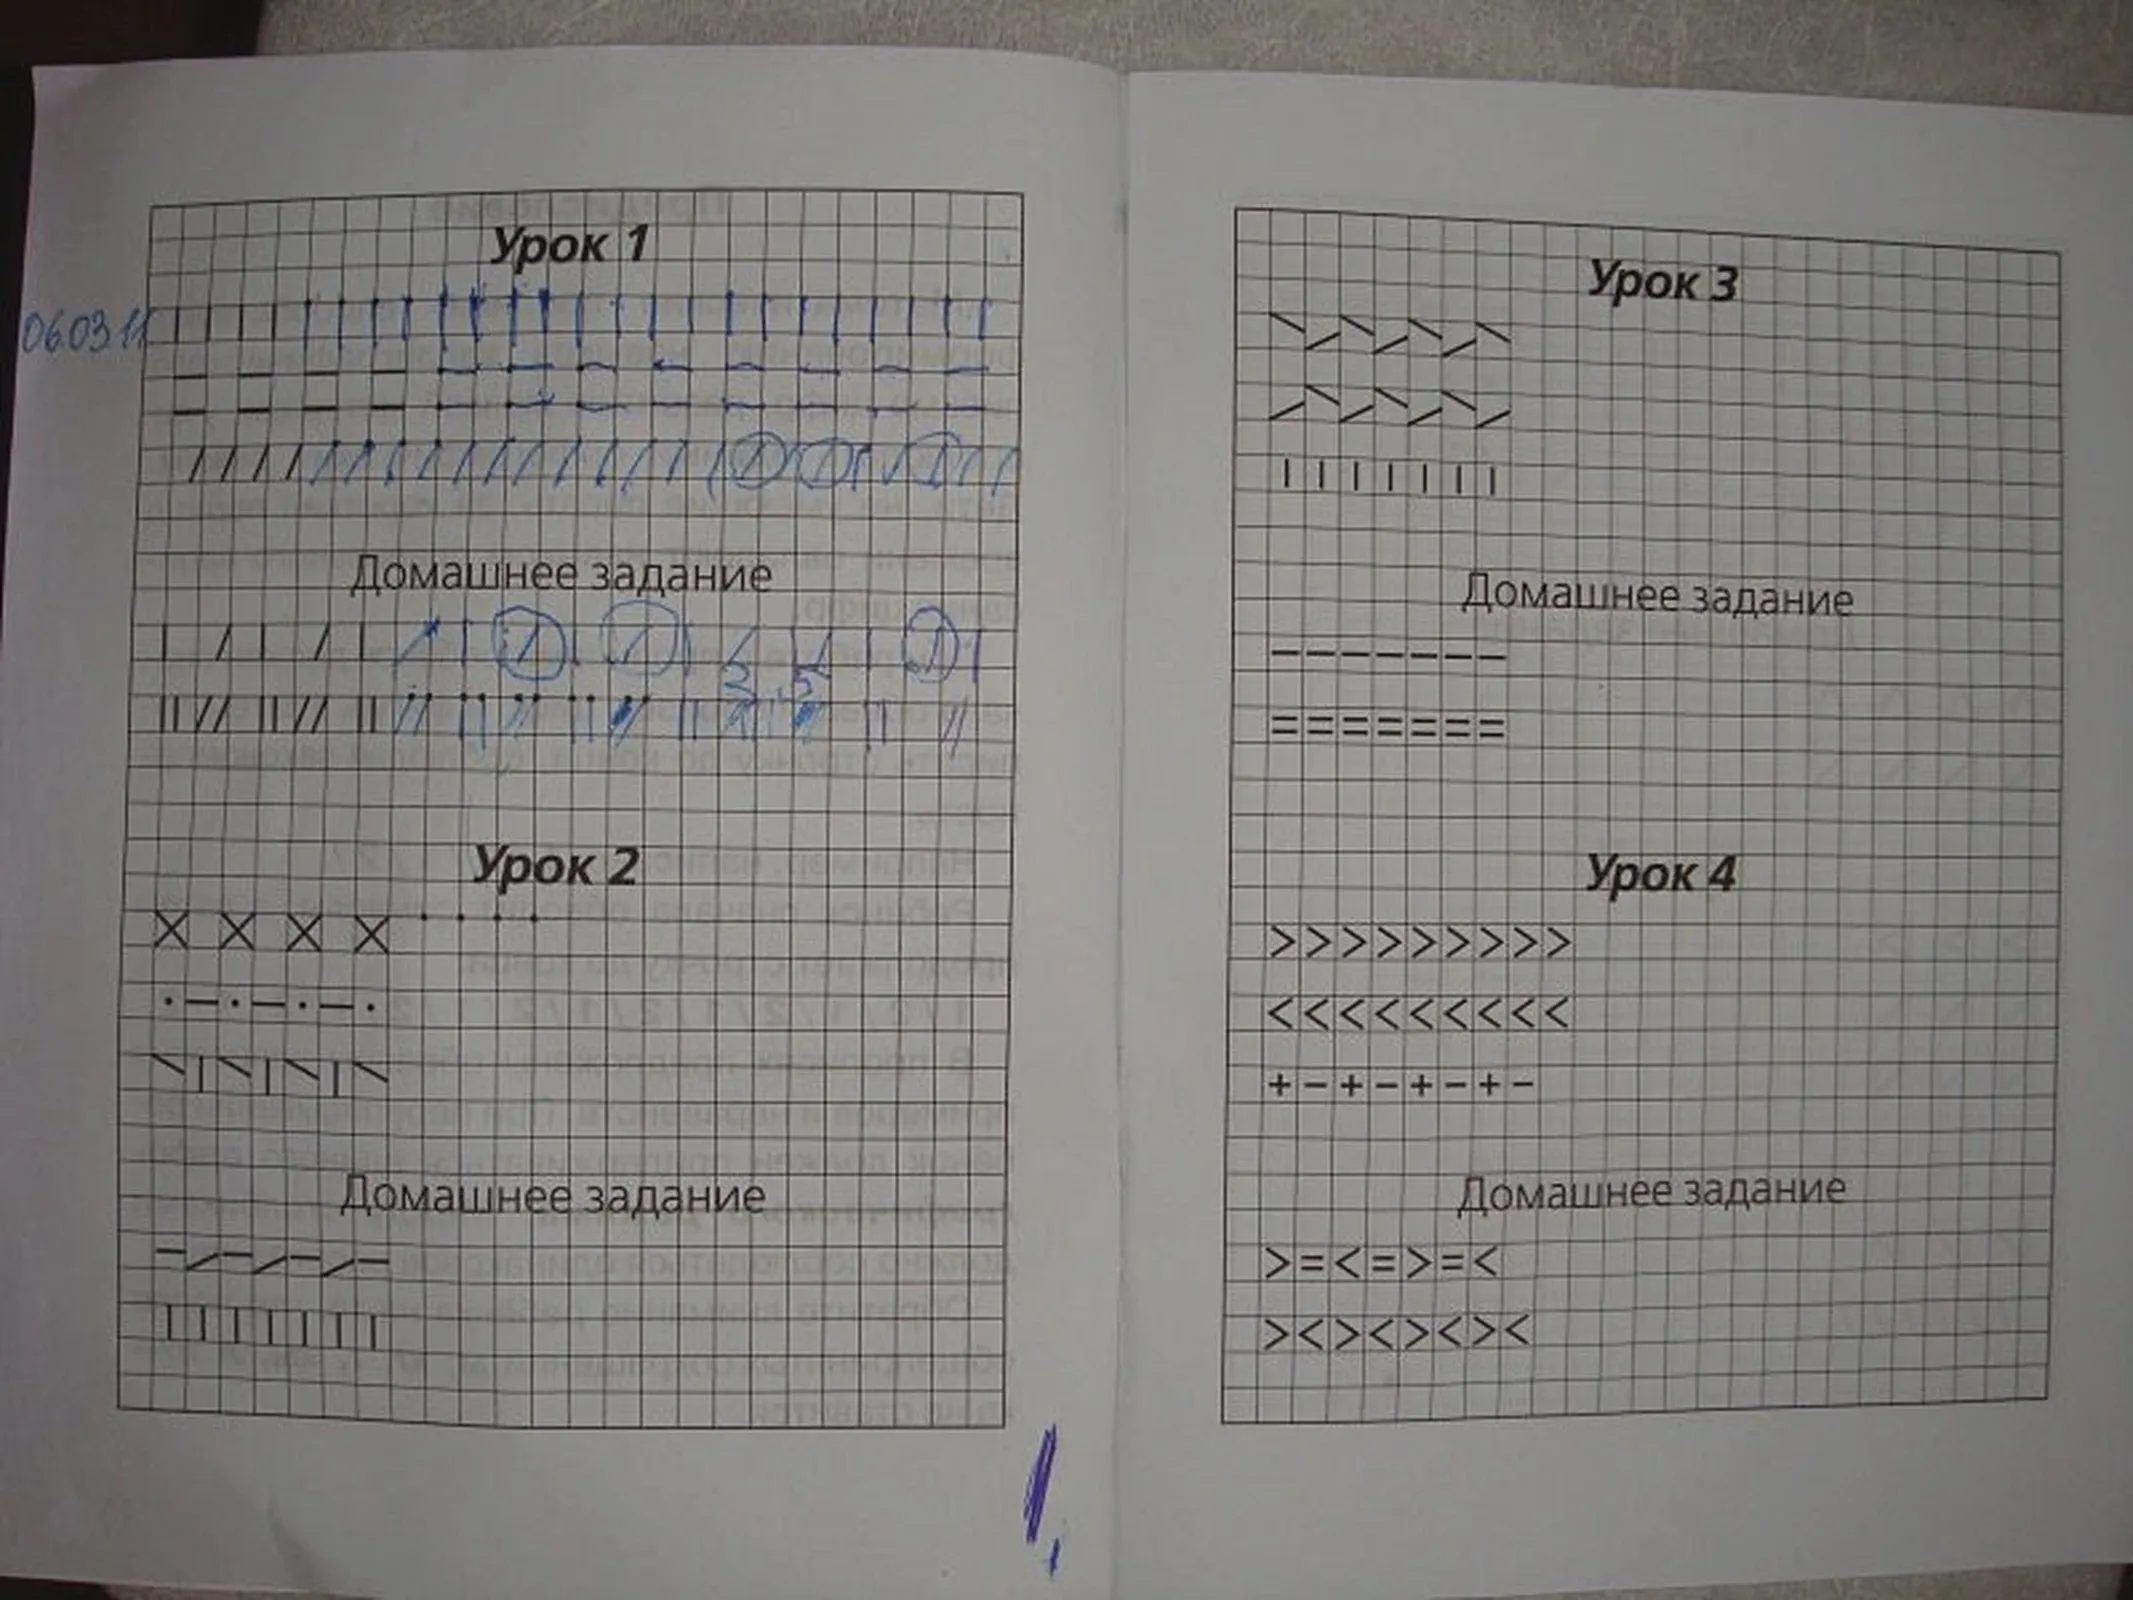 Урок 1
06.03.11
Домашнее задание
3 5
Урок 2
Домашнее задание
Урок 3
Домашнее задание
- - - - - - -
= = = = = = =
Урок 4
> > > > > > > > >
< < < < < < < < <
+ - + - + - + -
Домашнее задание
> = < = > = <
> < > < > < > <